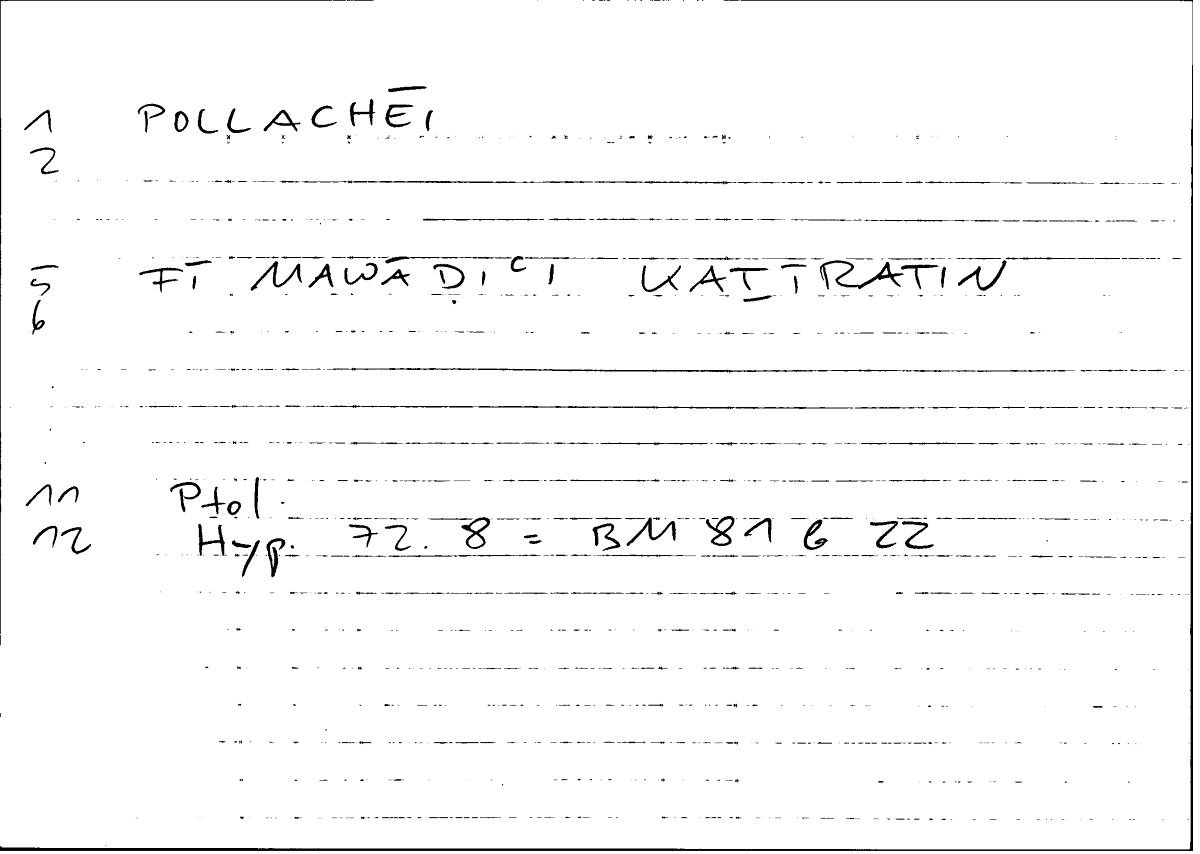 1 POLLACHĒI
2
5 FĪ MAWĀḌIʿI KAṮĪRATIN
6
11 Ptol.
12 Hyp. 72.8 = BM 81 b 22